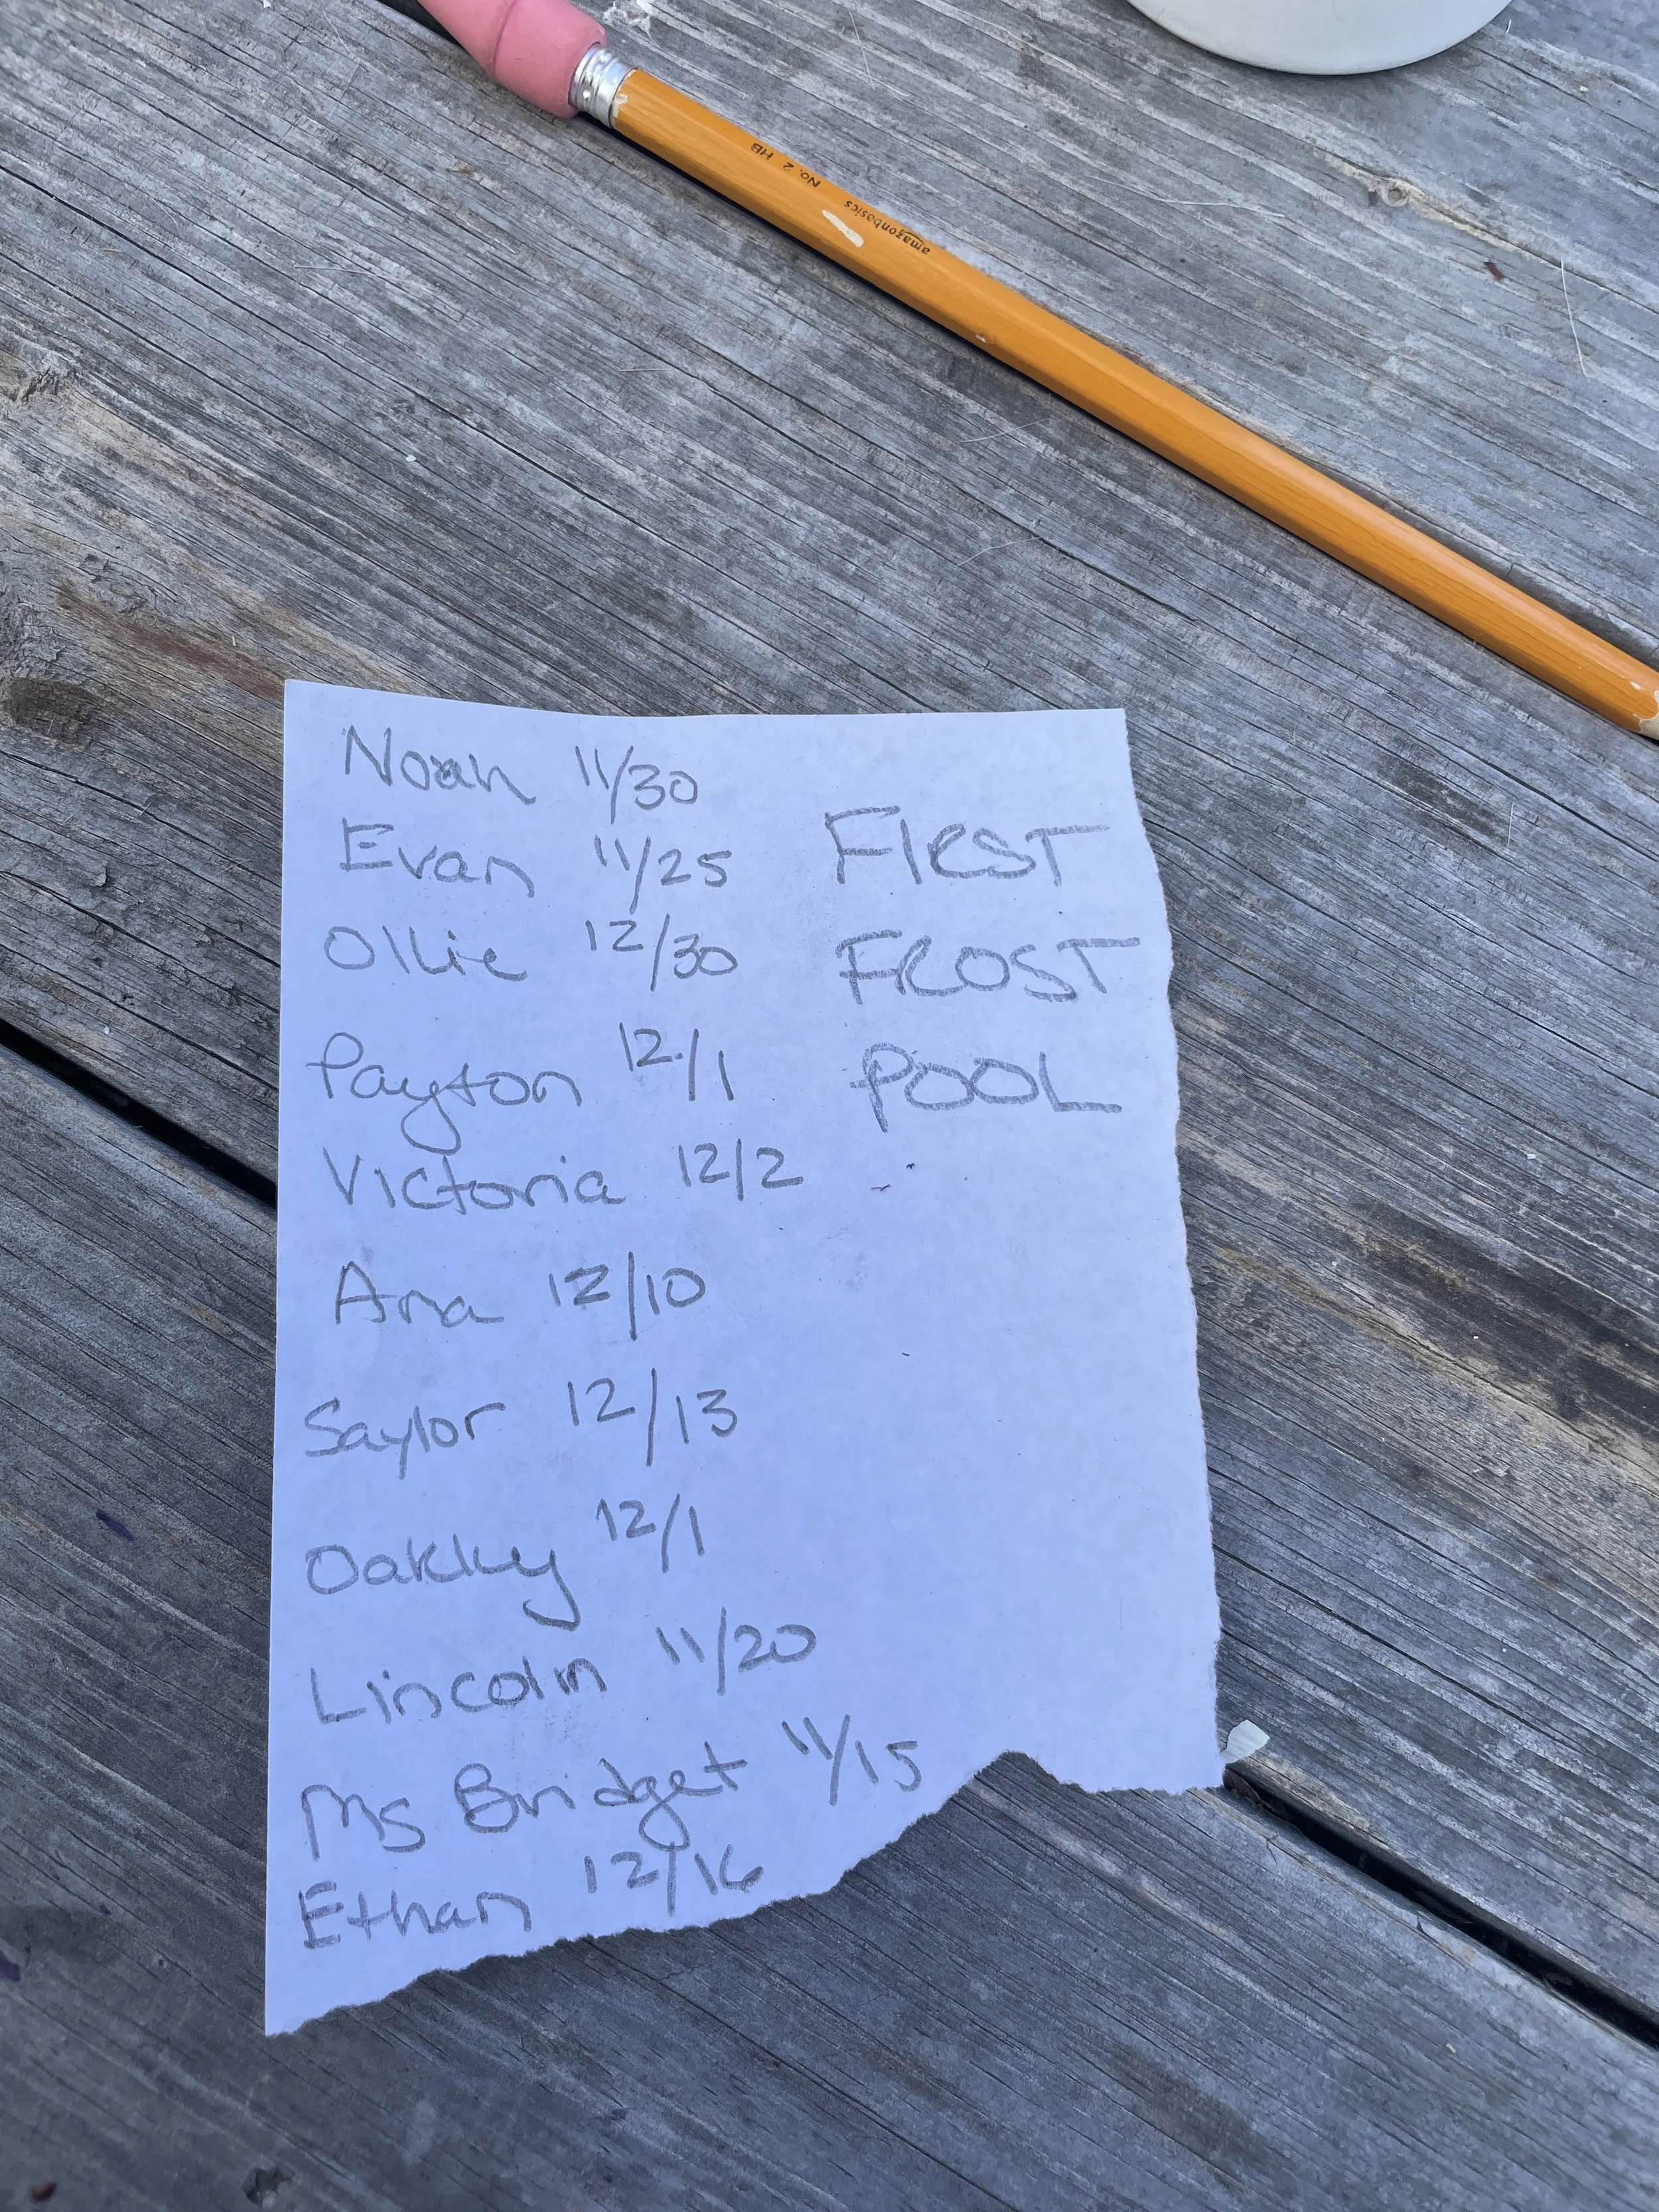 amazonbasics No. 2 HB
Noah 11/30
Evan 11/25
Ollie 12/30
Payton 12/1
Victoria 12/2
Ana 12/10
Saylor 12/13
Oakley 12/1
Lincoln 11/20
Ms Bridget 11/15
Ethan 12/16
FIRST
FROST
POOL